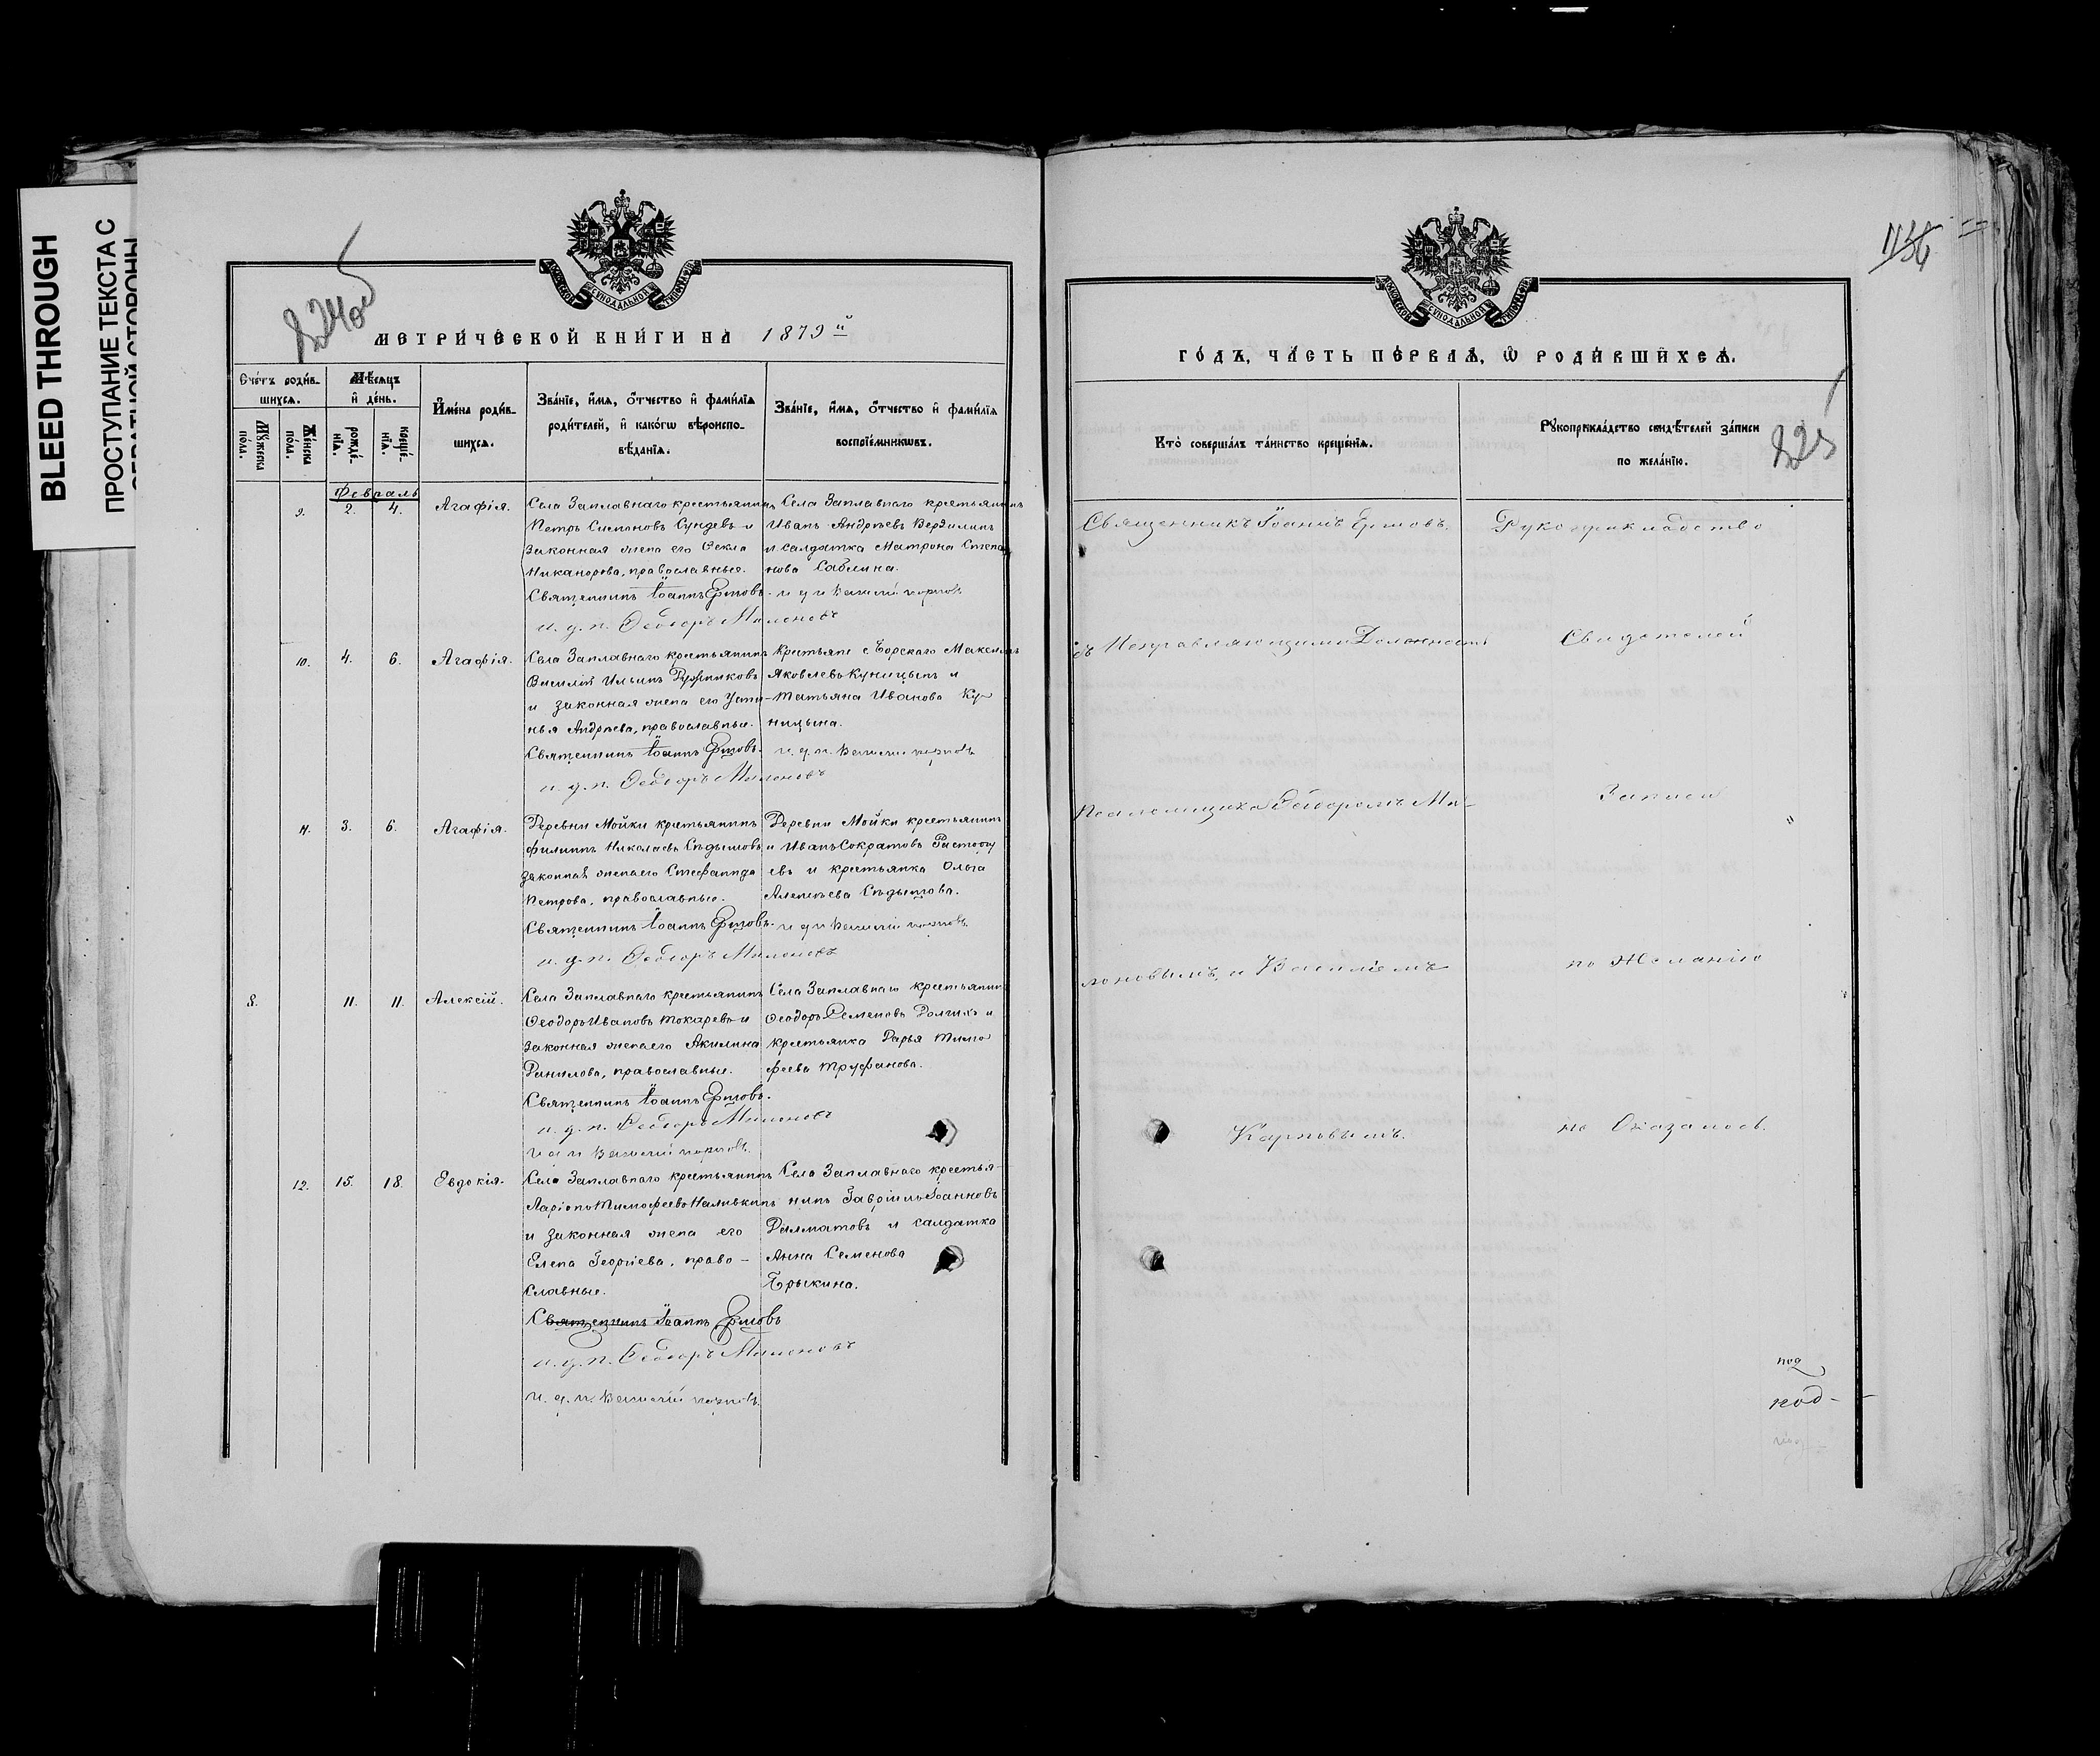 BLEED THROUGH
ПРОСТУПАНИЕ ТЕКСТА С
ОБРАТНОЙ СТОРОНЫ
224об
МЕТРИЧЕСКОЙ КНИГИ НА 1879й
Счетъ родив-
шихся.
Мѣсяцъ
и день.
Мужеска
пола.
Женска
пола.
рожде-
нія.
креще-
нія.
Имена родив-
шихся.
Званіе, имя, отчество и фамилія
родителей, и какогѡ вѣроиспо-
вѣданія.
Званіе, имя, отчество и фамилія
воспріемниковъ.
Февраль
9. 2. 4. Агафія.
Села Заплавнаго крестьянинъ
Петръ Симоновъ Сундевъ и
законная жена его Ѳекла
Никанорова, православные.
Священникъ Іоаннъ Ершовъ.
и. д. п. Ѳедоръ Милоновъ
Села Заплавнаго крестьянинъ
Иванъ Андреевъ Верзилинъ
и салдатка Матрона Степа
нова Саблина.
и д п Василій Карповъ
10. 4. 6. Агафія.
Села Заплавнаго крестьянинъ
Василій Ильинъ Ружниковъ
и законная жена его Усти-
нья Андреева, православные.
Священникъ Іоаннъ Ершовъ.
и. д. п. Ѳедоръ Милоновъ
Крестьяне с Борскаго Максимъ
Яковлевъ Куницынъ и
Татьяна Иванова Ку-
ницына.
и. д. п. Василій Карповъ
11. 3. 6. Агафія.
Деревни Мойки крестьянинъ
Филиппъ Николаевъ Сѣдышовъ и
законная жена его Стефанида
Петрова, православные.
Священникъ Іоаннъ Ершовъ.
и. д. п. Ѳедоръ Милоновъ
Деревни Мойки крестьянинъ
Иванъ Сократовъ Расторгу
евъ и крестьянка Ольга
Алексѣева Сѣдышова.
и д п Василій Карповъ
8. 11. 11. Алексій.
Села Заплавнаго крестьянинъ
Ѳеодоръ Ивановъ Токаревъ и
законная жена его Акилина
Данилова, православные.
Священникъ Іоаннъ Ершовъ.
и. д. п. Ѳедоръ Милоновъ
и д п Василій Карповъ.
Села Заплавнаго крестьянинъ
Ѳеодоръ Семеновъ Долгихъ и
крестьянка Дарья Тимо
феева Труфанова.
12. 15. 18. Евдокія.
Села Заплавнаго крестьянинъ
Ларіонъ Тимофеевъ Наливкинъ
и законная жена его
Елена Георгіева, право-
славные.
Священникъ Іоаннъ Ершовъ
и. д. п. Ѳедоръ Милоновъ
и. д. п. Василій Карповъ.
Села Заплавнаго крестья-
нинъ Гавріилъ Іоанновъ
Далматовъ и салдатка
Анна Семенова
Ярыкина.
ГОДЪ, ЧАСТЬ ПЕРВАЯ, Ѡ РОДИВШИХСЯ.
225
Кто совершалъ таинство крещенія.
Рукоприкладство свидѣтелей записи
по желанію.
Священникъ Іоаннъ Ершовъ,
съ Исправляющими Должность
Псаломщика Ѳедоромъ Ми-
лоновымъ, и Василіемъ
Карповымъ.
Рукоприкладство
Свидетелей
Записи
по Желанію
не Оказалось.
под
под-